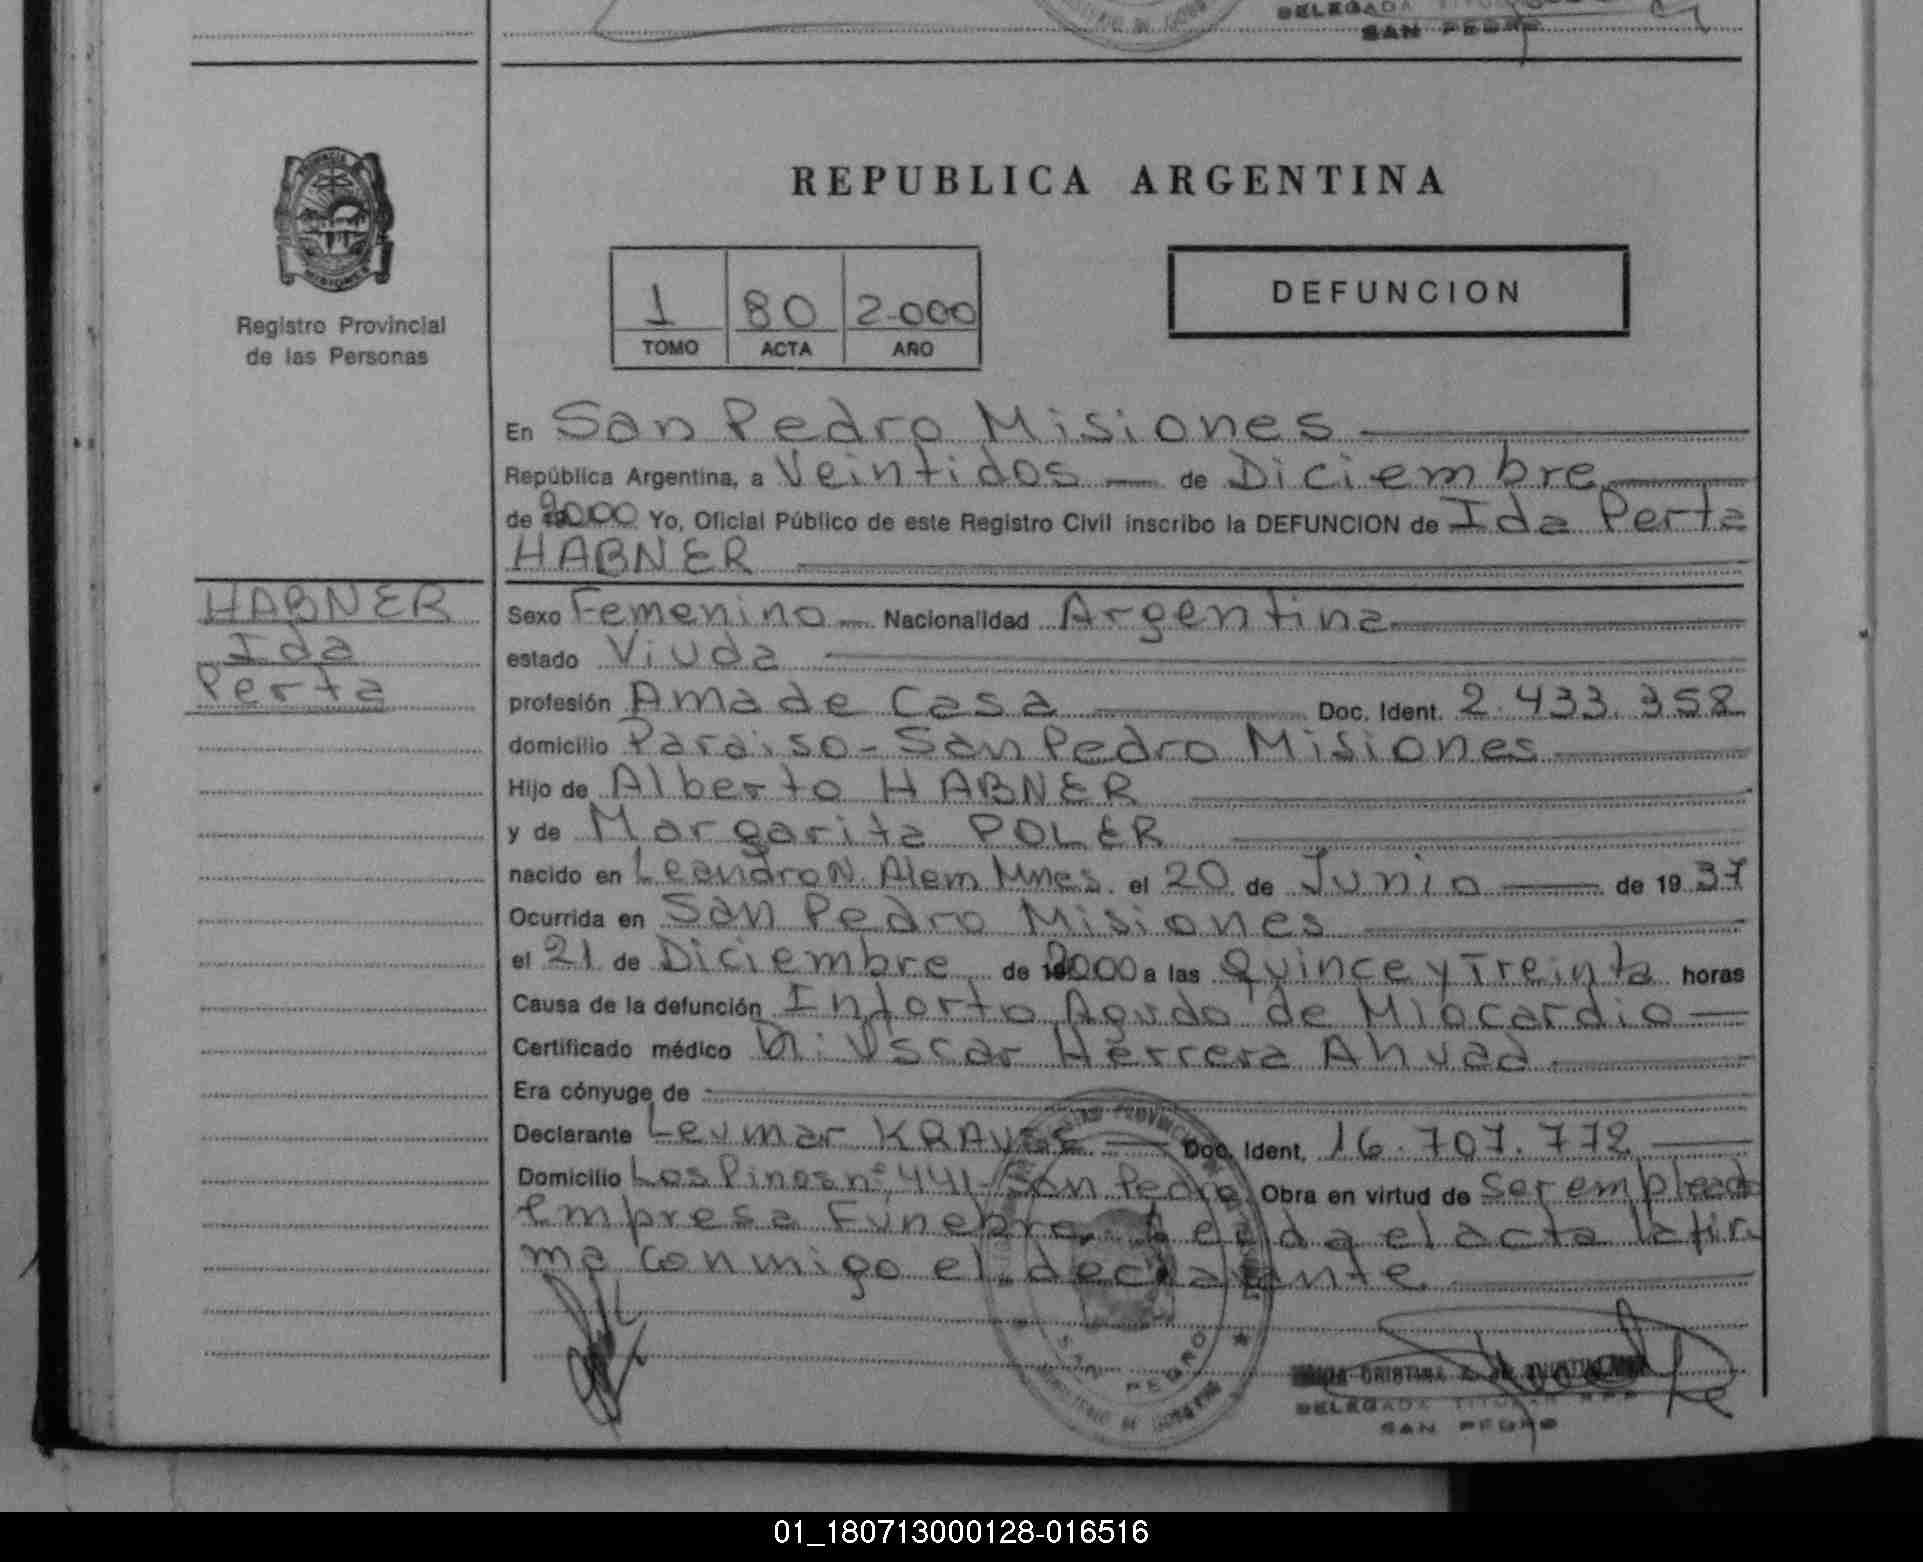 DELEGADA TITULAR
SAN PEDRO
PROVINCIA
MISIONES
Registro Provincial
de las Personas
REPUBLICA ARGENTINA
1 80 2.000
TOMO ACTA AÑO
DEFUNCION
En San Pedro Misiones
República Argentina, a Veintidos de Diciembre
de 2000 Yo, Oficial Público de este Registro Civil inscribo la DEFUNCION de Ida Perta
HABNER
HABNER
Ida
Perta
Sexo Femenino Nacionalidad Argentina
estado Viuda
profesión Ama de Casa Doc. Ident. 2.433.358
domicilio Paraiso - San Pedro Misiones
Hijo de Alberto HABNER
y de Margarita POLER
nacido en Leandro N. Alem Mnes. el 20 de Junio de 19 37
Ocurrida en San Pedro Misiones
el 21 de Diciembre de 2000 a las Quince y Treinta horas
Causa de la defunción Infarto Agudo de Miocardio
Certificado médico Dr. Oscar Herrera Ahuad
Era cónyuge de
Declarante Leumar KRAUSE Doc. Ident. 16.707.772
Domicilio Los Pinos nº 441 - San Pedro Obra en virtud de Ser empleado
Empresa Funebre. Leida el acta la fir
ma conmigo el declarante
SAN PEDRO
MINISTERIO DE GOBIERNO
CRISTINA
DELEGADA TITULAR RPP
SAN PEDRO
01_180713000128-016516